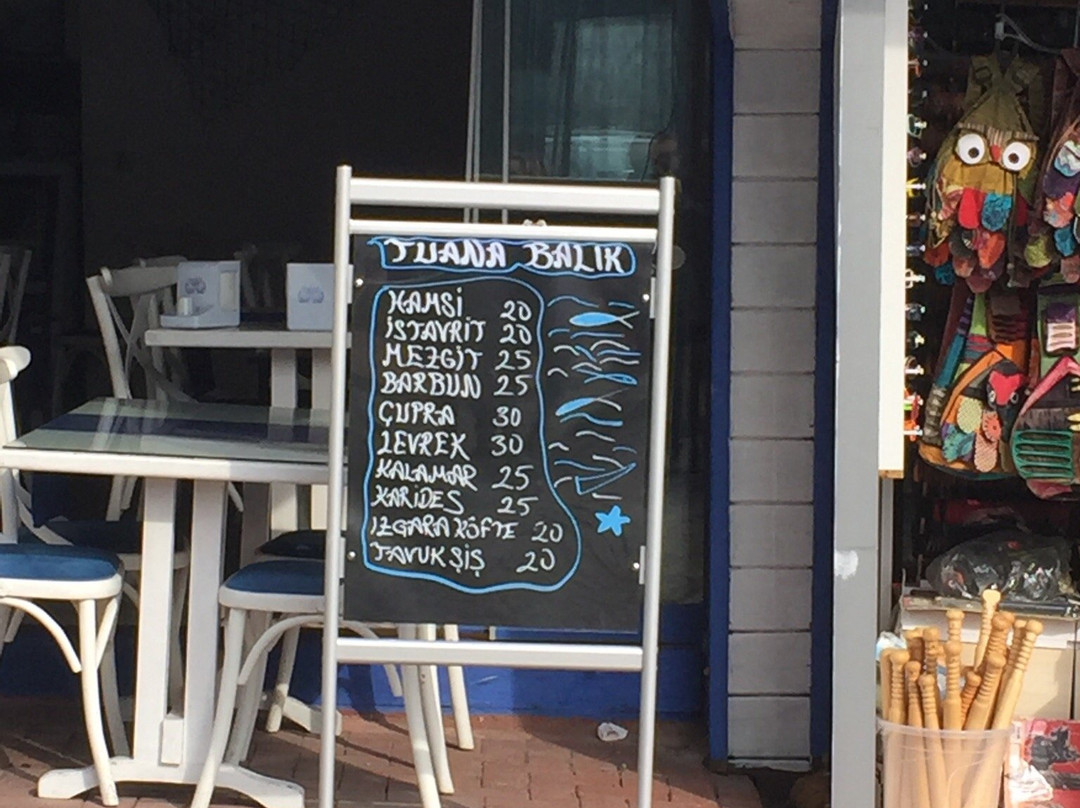 TUANA BALIK
HAMSİ 20
İSTAVRİT 20
MEZGİT 25
BARBUN 25
ÇUPRA 30
LEVREK 30
KALAMAR 25
KARİDES 25
IZGARA KÖFTE 20
TAVUK ŞİŞ 20